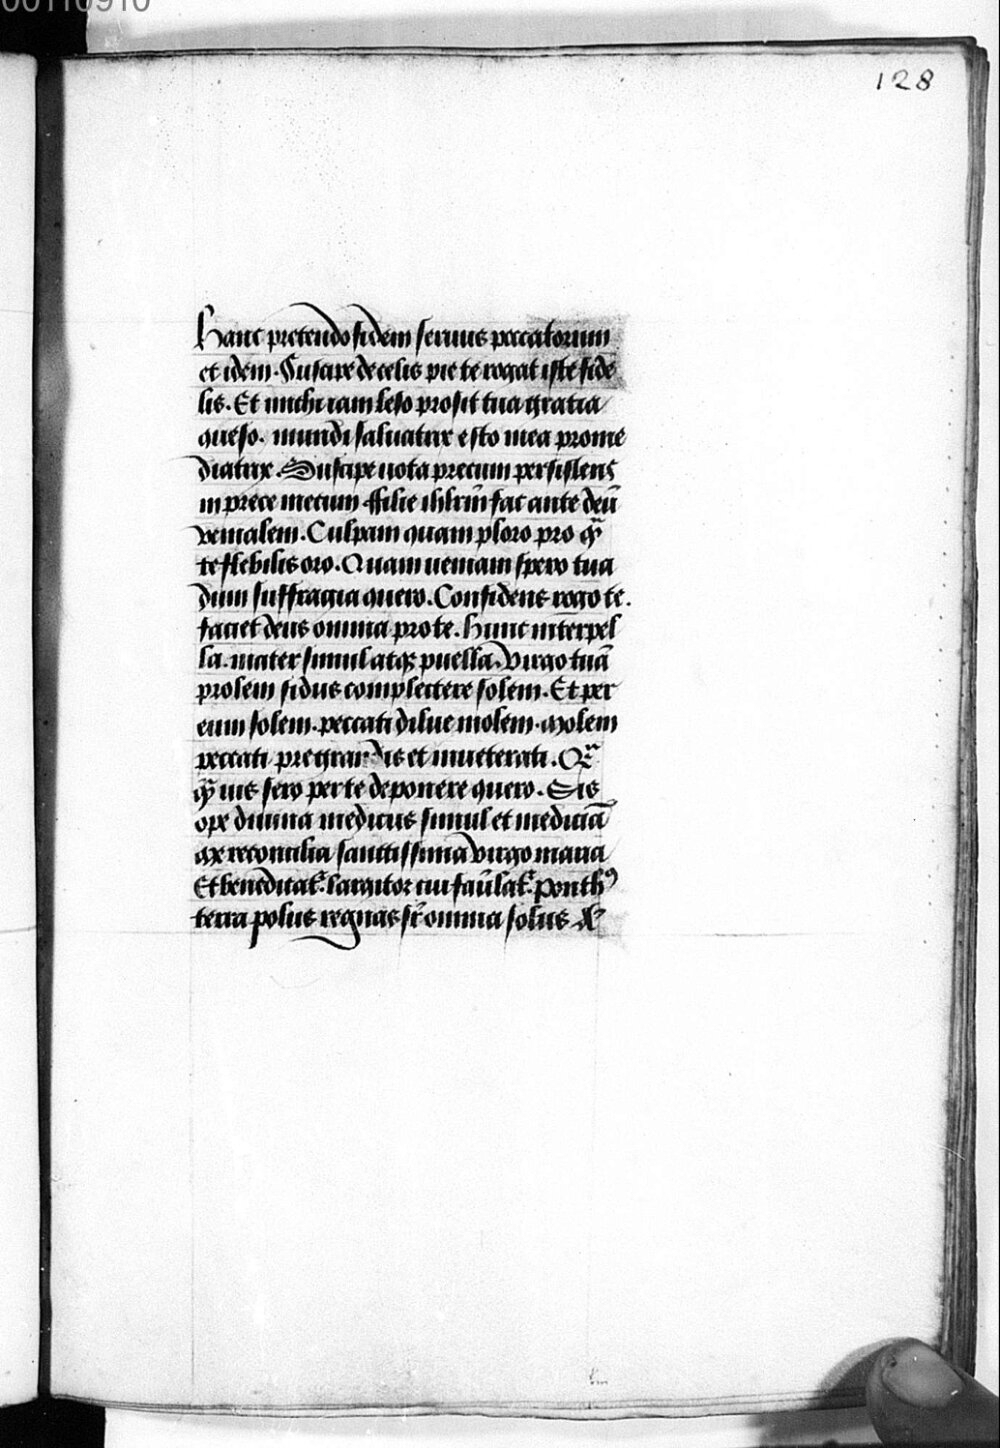 00110910
128
Hanc pretendo fidem seruus peccatorum
et idem. Suscipe de celis pie te rogat iste fide
lis. Et michi iam leso prosit tua gratia
queso. mundi saluatrix esto mea prome
diatrix. Suscipe uota precum persistens
in prece mecum ffilie ihlrm̄ fac ante deū
venialem. Culpam quam ploro pro qͣ
te flebilis oro. Quam ueniam spero tua
dum suffragia quero. Confidens rogo te.
faciet deus omnia pro te. Hunc interpel
la. mater simul atqꝫ puella. Virgo tuā
prolem fidus complectere solem. Et per
eum solem. peccati dilue molem. Molem
peccati pregrandis et inueterati.
qͣ uis sero per te deponere quero. Sis
ope diuina medicus simul et medicīa
reconcilia sanctissima virgo maria
Et benedicat largitor cui faūlat Ponthꝰ
terra polus regnas omnia solus